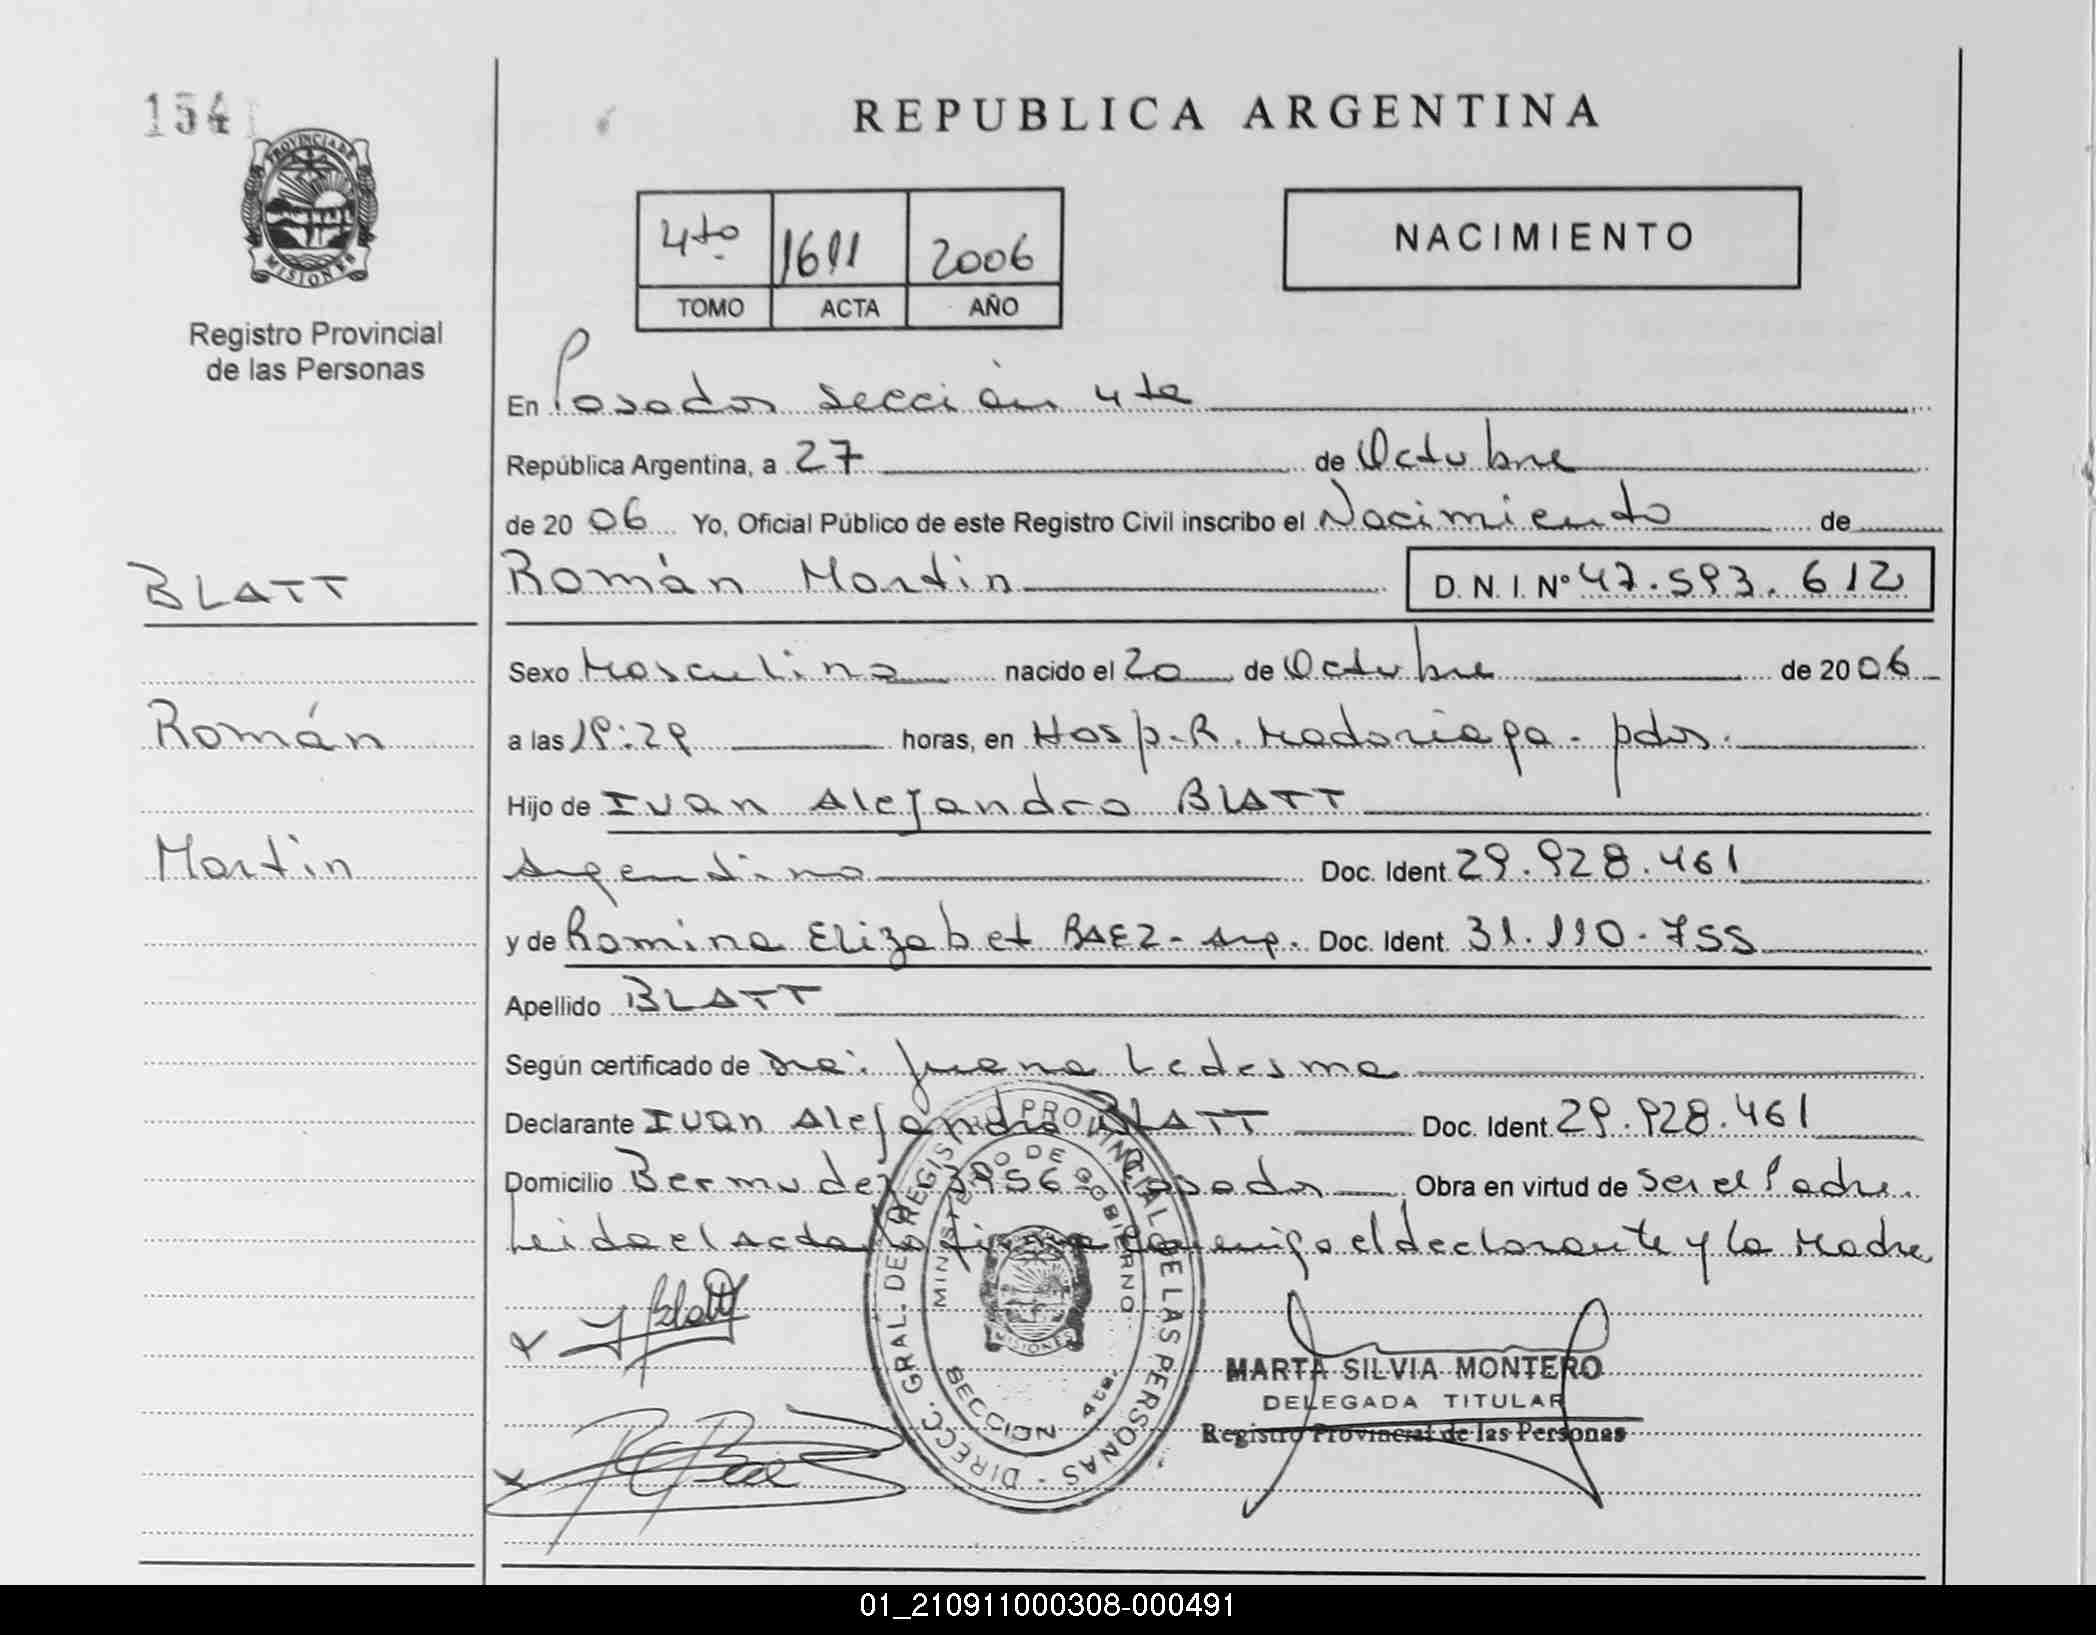 154
PROVINCIA DE
MISIONES
Registro Provincial
de las Personas
REPUBLICA ARGENTINA
4to 1611 2006
TOMO ACTA AÑO
NACIMIENTO
En Posadas sección 4ta
República Argentina, a 27 de Octubre
de 2006 Yo, Oficial Público de este Registro Civil inscribo el Nacimiento de
BLATT
Román Martín D.N.I. Nº 47.593.612
Sexo Masculino nacido el 20 de Octubre de 2006
Román
a las 19:29 horas, en Hosp. R. Madariaga - pdas.
Hijo de Ivan Alejandro BLATT
Martín
Argentino Doc. Ident. 29.928.461
y de Romina Elizabet BAEZ - Arg. Doc. Ident. 31.110.755
Apellido BLATT
Según certificado de Dra: Juana Ledesma
Declarante Ivan Alejandro BLATT Doc. Ident. 29.928.461
Domicilio Bermudez 3956 Posadas Obra en virtud de ser el Padre.
Leida el Acta la firma conmigo el declarante y la Madre
Blatt
DIRECC. GRAL. DE REGISTRO PROVINCIAL DE LAS PERSONAS -
MINISTERIO DE GOBIERNO
MISIONES
SECCION 4ta.
MARTA SILVIA MONTERO
DELEGADA TITULAR
Registro Provincial de las Personas
01_210911000308-000491